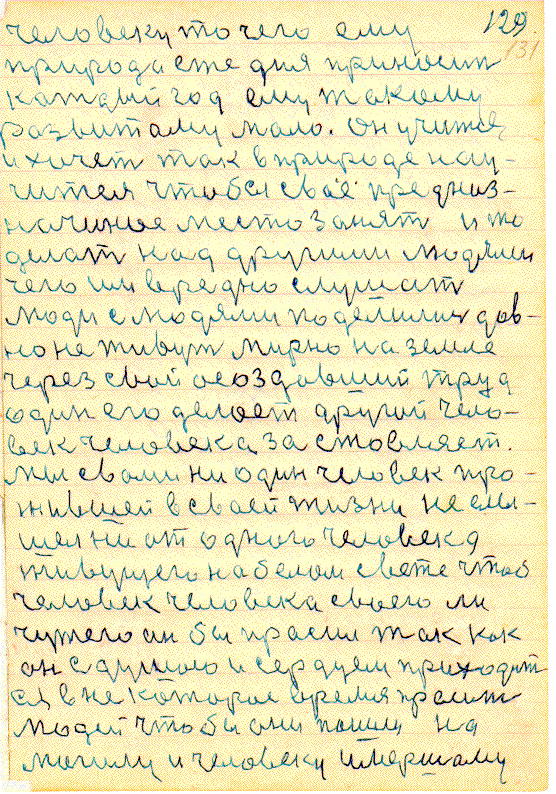 129.
131
человеку то чего ему
природа еже дня приносит
каждый год ему такому
развитаму мало. Он учится
и хочет так в природе нау-
чится чтобы своё предназ-
начиное место занят и то
делат над другими людями
чего им вредно слушат
люди с людями поделилис дов-
но не живут мирно на земле
через свой оеоздавший труд
один его делоет другой чело-
век человека застовляет.
Мы свами ни один человек про-
жившей в своей жизни не слы-
шел ни от одного человека
живущего на белом свете чтоб
человек человека своего ли
чужего он бы прасил так как
он с душою и сердцем приходит
ся в некоторое время просит
людей чтобы они пошли на
могилу и человеку умершаму